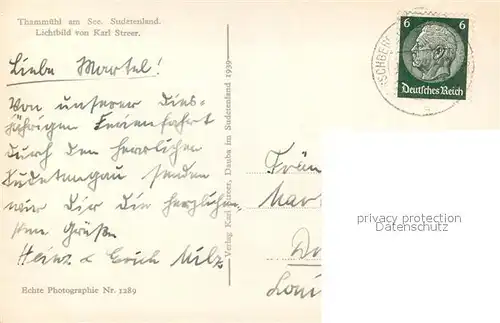 Thammühl am See. Sudetenland.
Lichtbild von Karl Streer.
Liebe Martel!
Von unserer dies-
jährigen Ferienfahrt
durch den herrlichen
Sudetengau senden
wir Dir die herzlichen
Grüße
Heinz & Erich Milz
Echte Photographie Nr. 1289
Verlag Karl Streer, Dauba im Sudetenland 1939
6 6
Deutsches Reich
Fräu
Mar
privacy protection
Datenschutz